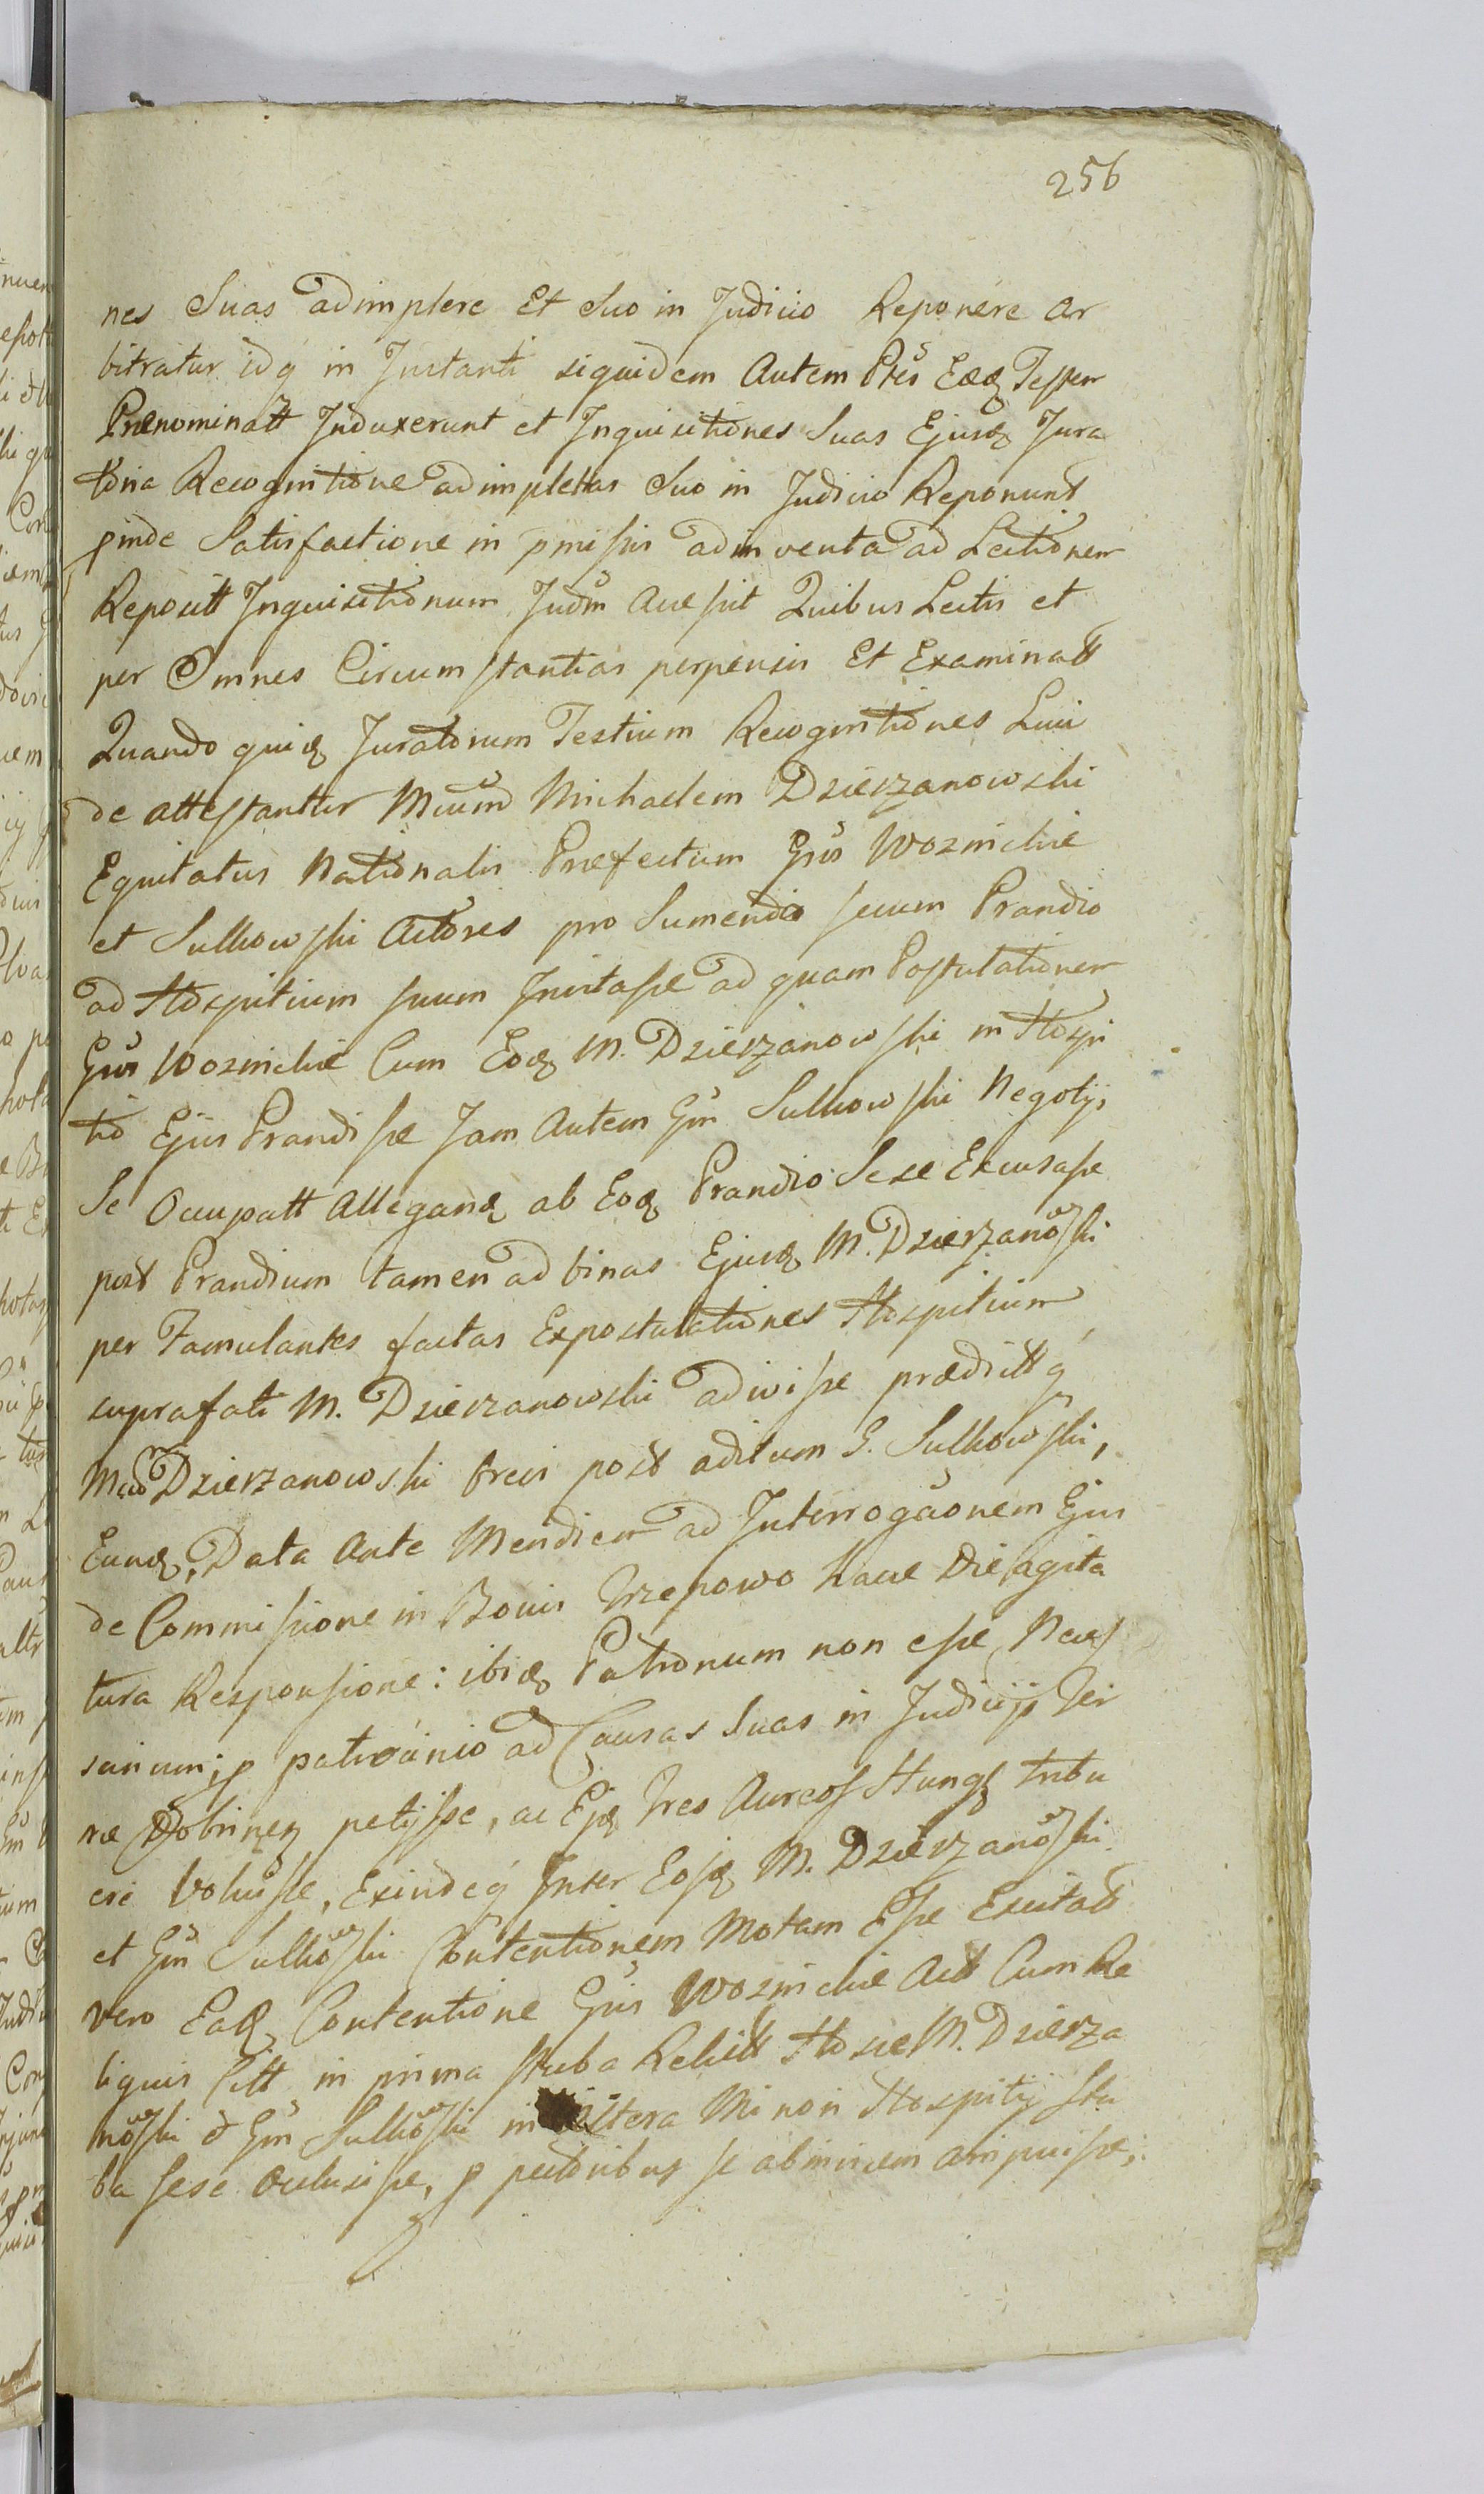 256
nes Suas adimplere Et Suo in Judicio Reponere ar
bitratur idq in Instanti siquidem Autem Ptes Eaeq Testem
Praenominatt Induxerunt et Inquisitiones Suas Ejusq Jura
toria Recognitione adimpletas Suo in Judicio Reponunt
pinde Satisfactione in pmissis adinventa ad Lectionem
Reposit Inquisitionum Judm Accessit Quibus Lectis et
per Omnes Circumstantias perpensis Et Examinatt
Quando quiq Juratorum Testium Recognitiones Luci
de attestantur Mcum Michaelem Dzierzanowski
Equitatus Nationalis Praefectum Gsis Woznickie
et Sulkowski Actores pro Sumendo secum Prandio
ad Hospitium suum Invitasse ad quam Postulationem
Gsis Woznickie Cum Eoq M. Dzierzanowski in Hospi
tio Ejus Prandisse Jam Autem Gsm Sulkowski Negotijs
Se Occupatt Alleganq ab Eoq Prandio Sese Excusasse
post Prandium tamen ad binas Ejusq M. Dzierzanoski
per Famulantes factas Expostulationes Hospitium
suprafati M. Dzierzanowski adivisse praedittq
Mcus Dzierzanowski brevi post aditum G. Sulkowski,
Eunq, Data Ante Meridiem ad Interrogaonem Ejus
de Commissione in Bonis Trzepowo hacce Die agita
tura Responsione: ibiq Patronum non esse Neces
sarium; p patrocinio ad Causas Suas in Judicijs Ter
rae Dobrineq petijsse, ac Ejq Tres Aureos Hungq tribu
ere Voluisse, Exindeq Inter Eosq M. Dzierzanoski
et Gsm Sulkoski Contentionem Motam Esse Excitatt
vero Eaq Contentione Gsis Woznickie Act Cum Re
liquis Citt in prima stuba Relictt Hocce M. Dzierza
noski et Gsm Sulkoski in altera Minori Hospitij stu
ba sese Occlusisse, p pectoribus se abinvicem arripuisse,